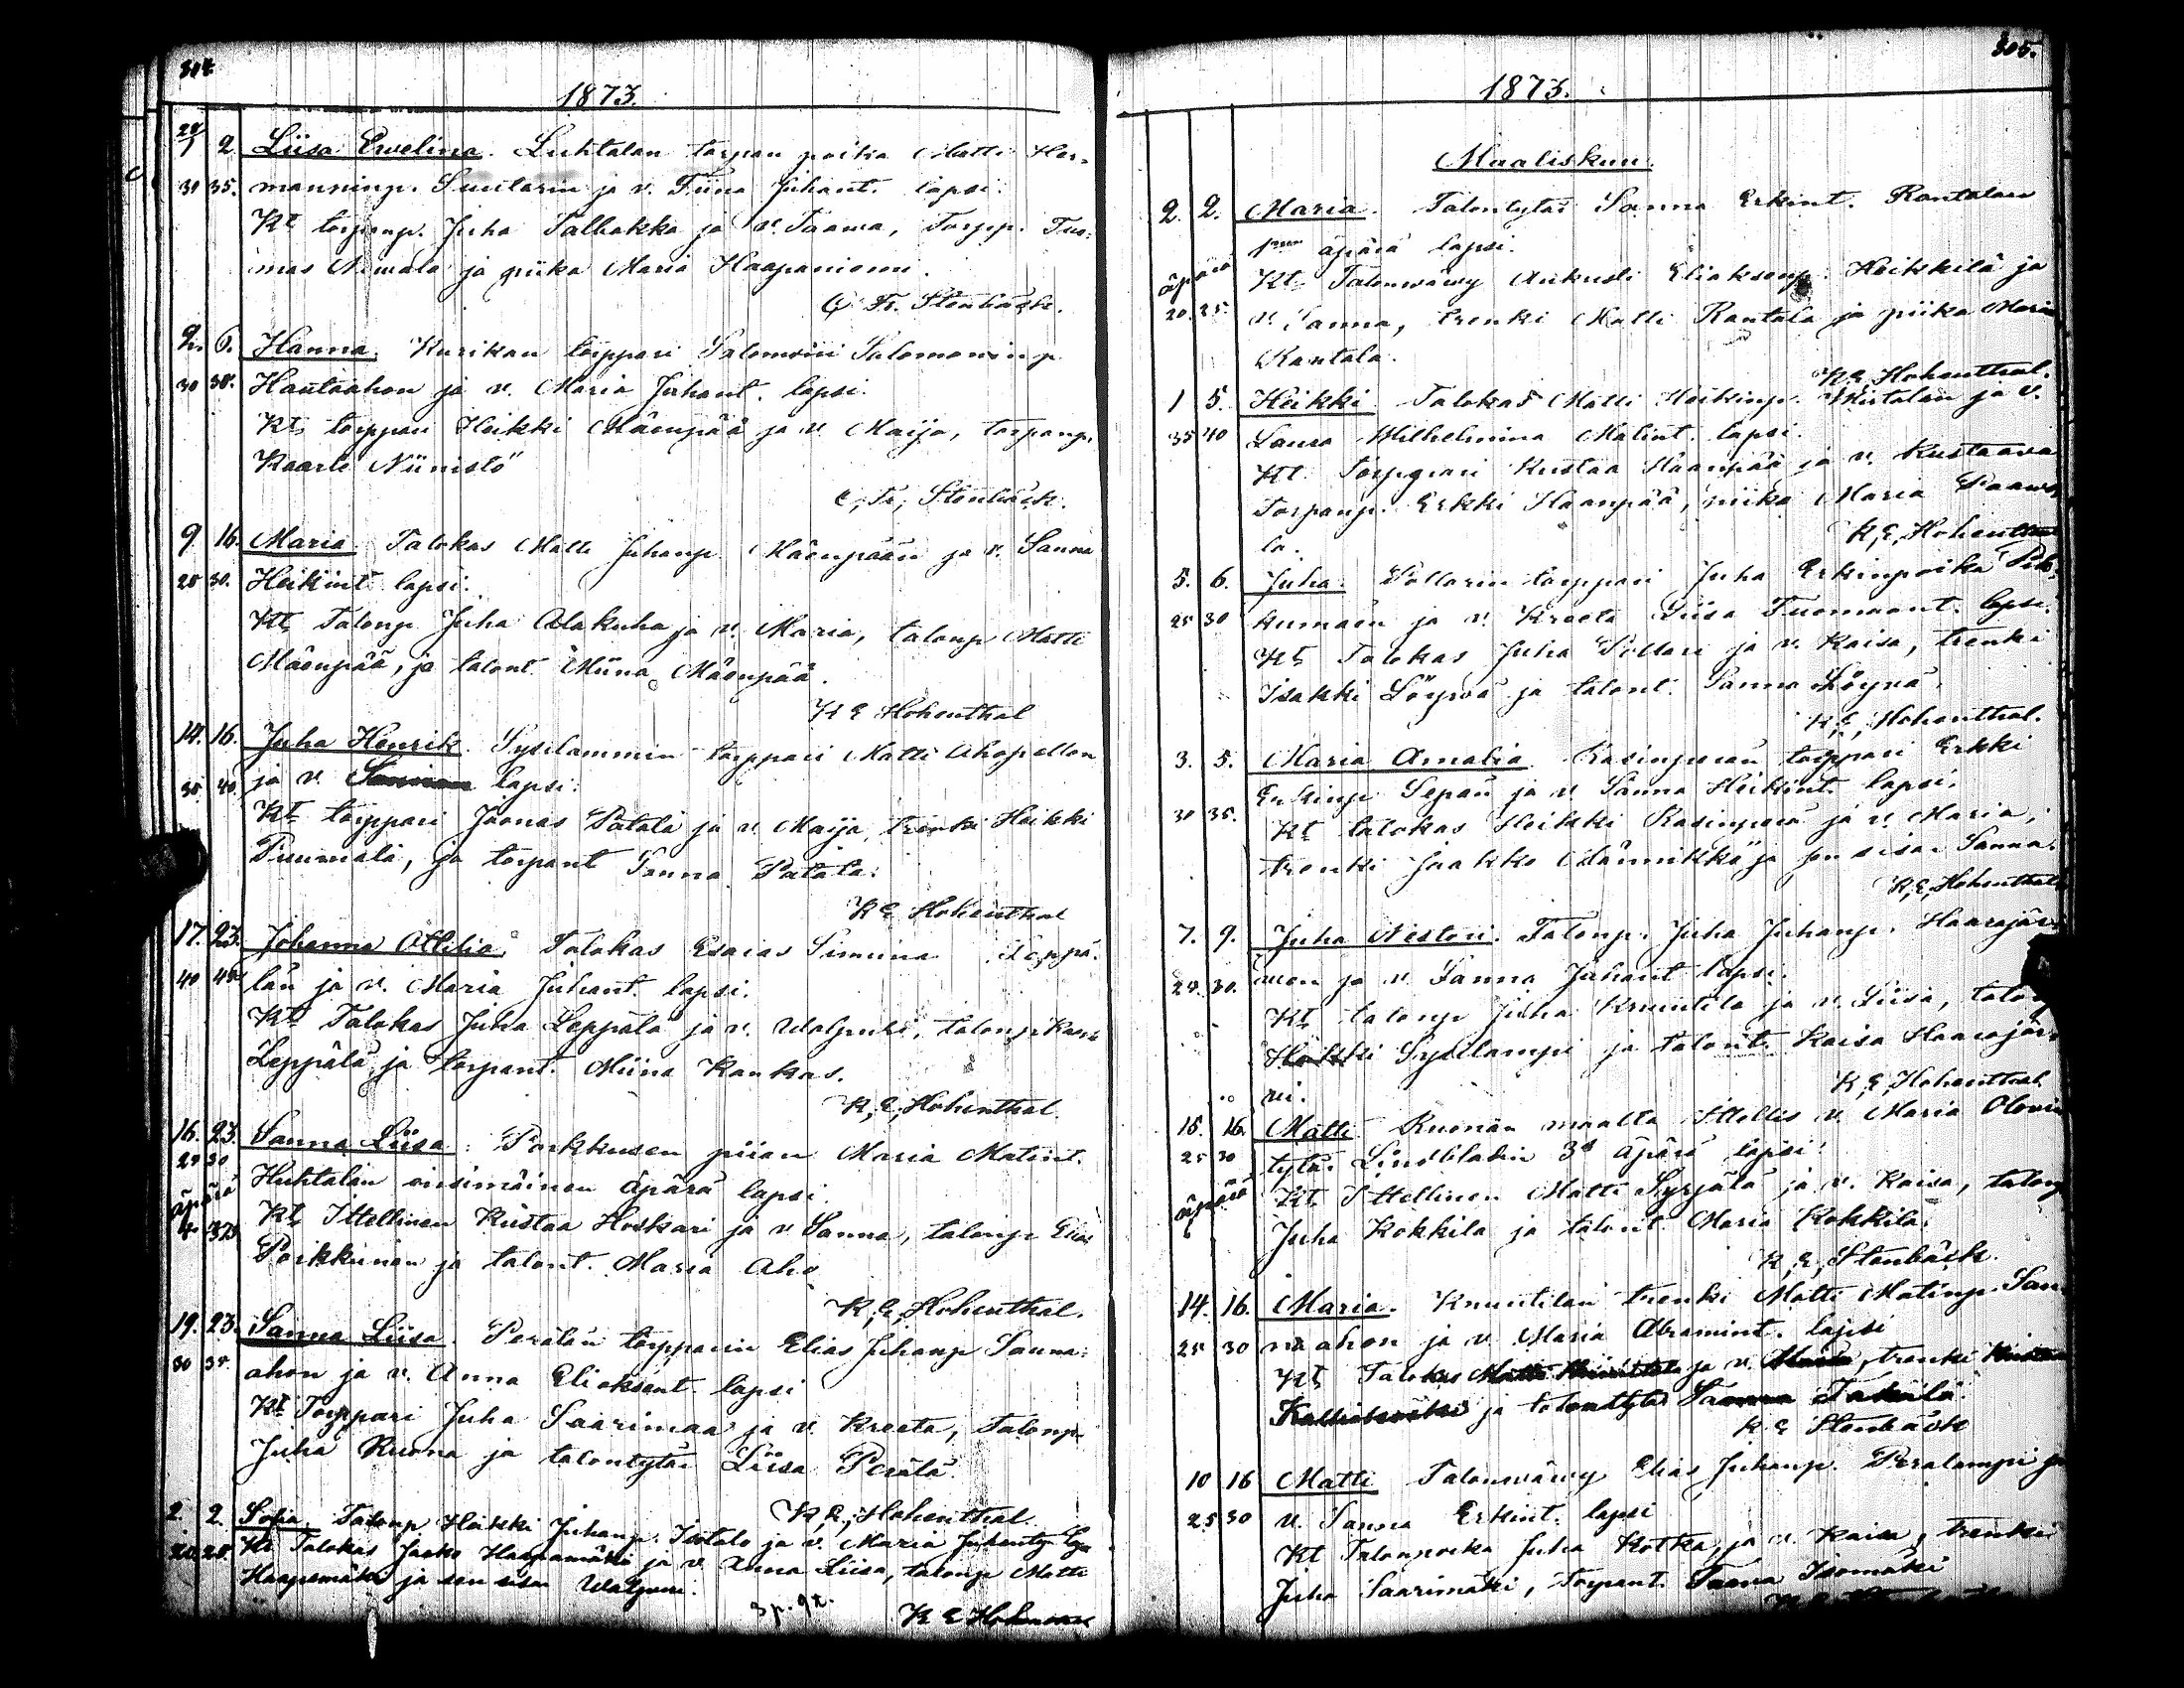 304
1873.
29/1 2 Liisa Eevelina. Luhtalan torpan poika Matti Her-
30 35. manninp. Suutarin ja v. Tiina Juhant. lapsi.
Kt torpanp. Juha Tallbakka ja v. Taava, Torpp. Tuo-
mas Niwala ja piika Maria Haapaniemi.
C. Fr. Stenbäck.
2. 6. Hanna. Kurikan torppari Salomoni Salomoninp
30 35. Hautaahon ja v. Maria Juhant. lapsi.
Kt, torppari Heikki Mäenpää ja v. Maija, torpanp.
Kaarle Niinistö
C, Fr, Stenbäck.
9. 16. Maria Talokas Matti Juhanp Mäenpään ja v. Sanna
25 30. Heikint lapsi.
Kt, Talonp Juha Alakuha ja v. Maria, talonp Matti
Mäenpää, ja talont. Miina Mäenpää.
K E Hohenthal
14. 16. Juha Henrik. Syselammin torppari Matti Ahopellon
35. 40. ja v. lapsi.
Kt torppari Joonas Patala ja v. Maija, trenki Heikki
Puumala, ja torpant Sanna Patala.
K E Hohenthal
17. 23. Johanna Ottilia Talokas Esaias Simuna Leppä-
40 45 län ja v. Maria Juhant. lapsi.
Kt Talokas Juha Leppälä ja v. Walpuri, talonp
Leppälä, ja torpant. Miina Kankas.
K, E, Hohenthal
16. 23. Sanna Liisa. Porkkusen piian Maria Matint.
25 30 Huhtalan ensimäinen äpärä lapsi.
äpärä Kt, Ittellinen Kustaa Hoskari ja v Sanna, talonp Elias
Poikkunen ja talont. Maria Aho
K, E, Hohenthal.
19. 23. Sanna Liisa. Perälän torpparin Elias Juhanp Sanna-
30 35. ahon ja v. Anna Eliaksent. lapsi
Kt Torppari Juha Saarimaa ja v. Kreeta, Talonp
Juha Ruona ja talontytär Liisa Perälä.
K, E, Hohenthal.
2. 2. Sofia. Talonp Heikki Juhanp. Isotalo ja v. Maria Juhanty
20. 25. Kt Talokas Jaako Haapamäki ja v. Anna Liisa, talonp Matti
Haapamäki ja sen sisar Walpuri.
3 p. 9 t.
K E
305.
1873.
Maaliskuu.
2. 2. Maria. Talontytär Sanna Erkint. Rantalan
1nen äpärä lapsi.
äpärä Kt, Talonwäwy Aukusti Eliaksenp. Heikkilä ja
20. 25. v. Sanna, trenki Matti Rantala ja piika Maria
Rantala.
K, E, Hohenthal.
1 5. Heikki Talokas Matti Heikinp. ja v.
35 40 Sanna Wilhelmina Matint. lapsi.
Kt. Torppari Kustaa Haanpää ja v. Kustaava
Torpanp. Erkki Haanpää, piika Maria Paawo
la.
K, E, Hohenthal
5. 6. Juha. Pollarin torppari Juha Erkinpoika
25 30 kumäen ja v. Kreeta Liisa Tuomaant. lapsi.
Kt, Talokas Juha Pollari ja v. Kaisa, trenki
Isakki Löyvä ja talont. Sanna Löyvä.
K, E, Hohenthal.
3. 5. Maria Amalia. Rasinperän torppari Erkki
30 35. Erkinp. Sepän ja v. Sanna Heikint. lapsi.
Kt talokas Heikki Rasinperä ja v. Maria,
trenki Jaakko Männikkö ja sen sisar Sanna.
K, E, Hohenthal
7. 9. Juha Nestori. Talonp. Juha Juhanp. Haarajär-
25. 30. wen ja v. Sanna Juhant lapsi.
Kt, talonp Juha Knuutila ja v. Liisa, talonp
Heikki Syselampi ja talont. Kaisa Haarajär-
vi.
K, E, Hohenthal
15. 16. Matti Ruonan maalta Ittellis v. Maria
25 30 tytär Lindbladin 3s äpärä lapsi.
äpärä Kt, Ittellinen Matti Syrjälä ja v. Kaisa, talonp
Juha Kokkila ja talont Maria Kokkila.
K, E, Stenbäck.
14. 16. Maria. Knuutilan trenki Matti Matinp San-
25 30 na ahon ja v. Maria Abramint. lapsi
Kt, Talokas Matti ja v. Maria, trenki
ja talontytär Sanna
K E Stenbäck
10 16 Matti Talonwäwy Elias Juhanp. Peralampi ja
25 30 v. Sanna Erkint. lapsi
Kt Talonpoika Juha Kotka, ja v. Kaisa, trenki
Juha Saarimäki, Torpant. Sanna Isomäki